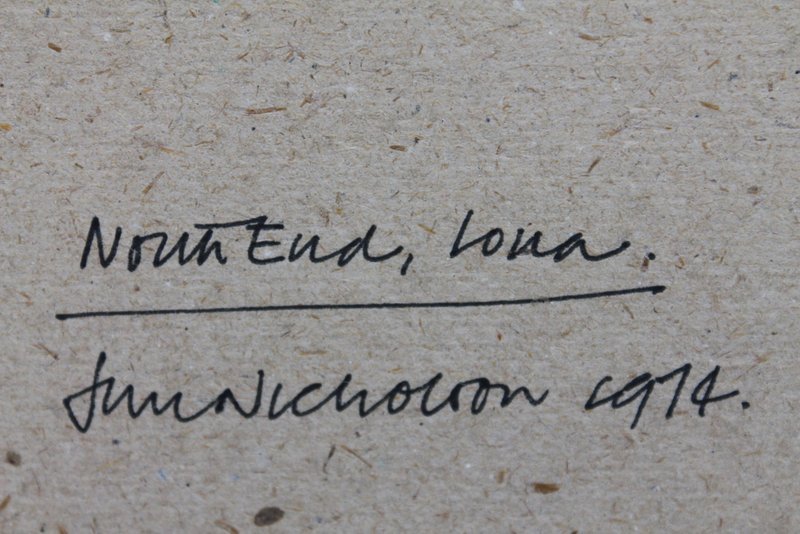 North End, Iona.
Jim Nicholson 1974.